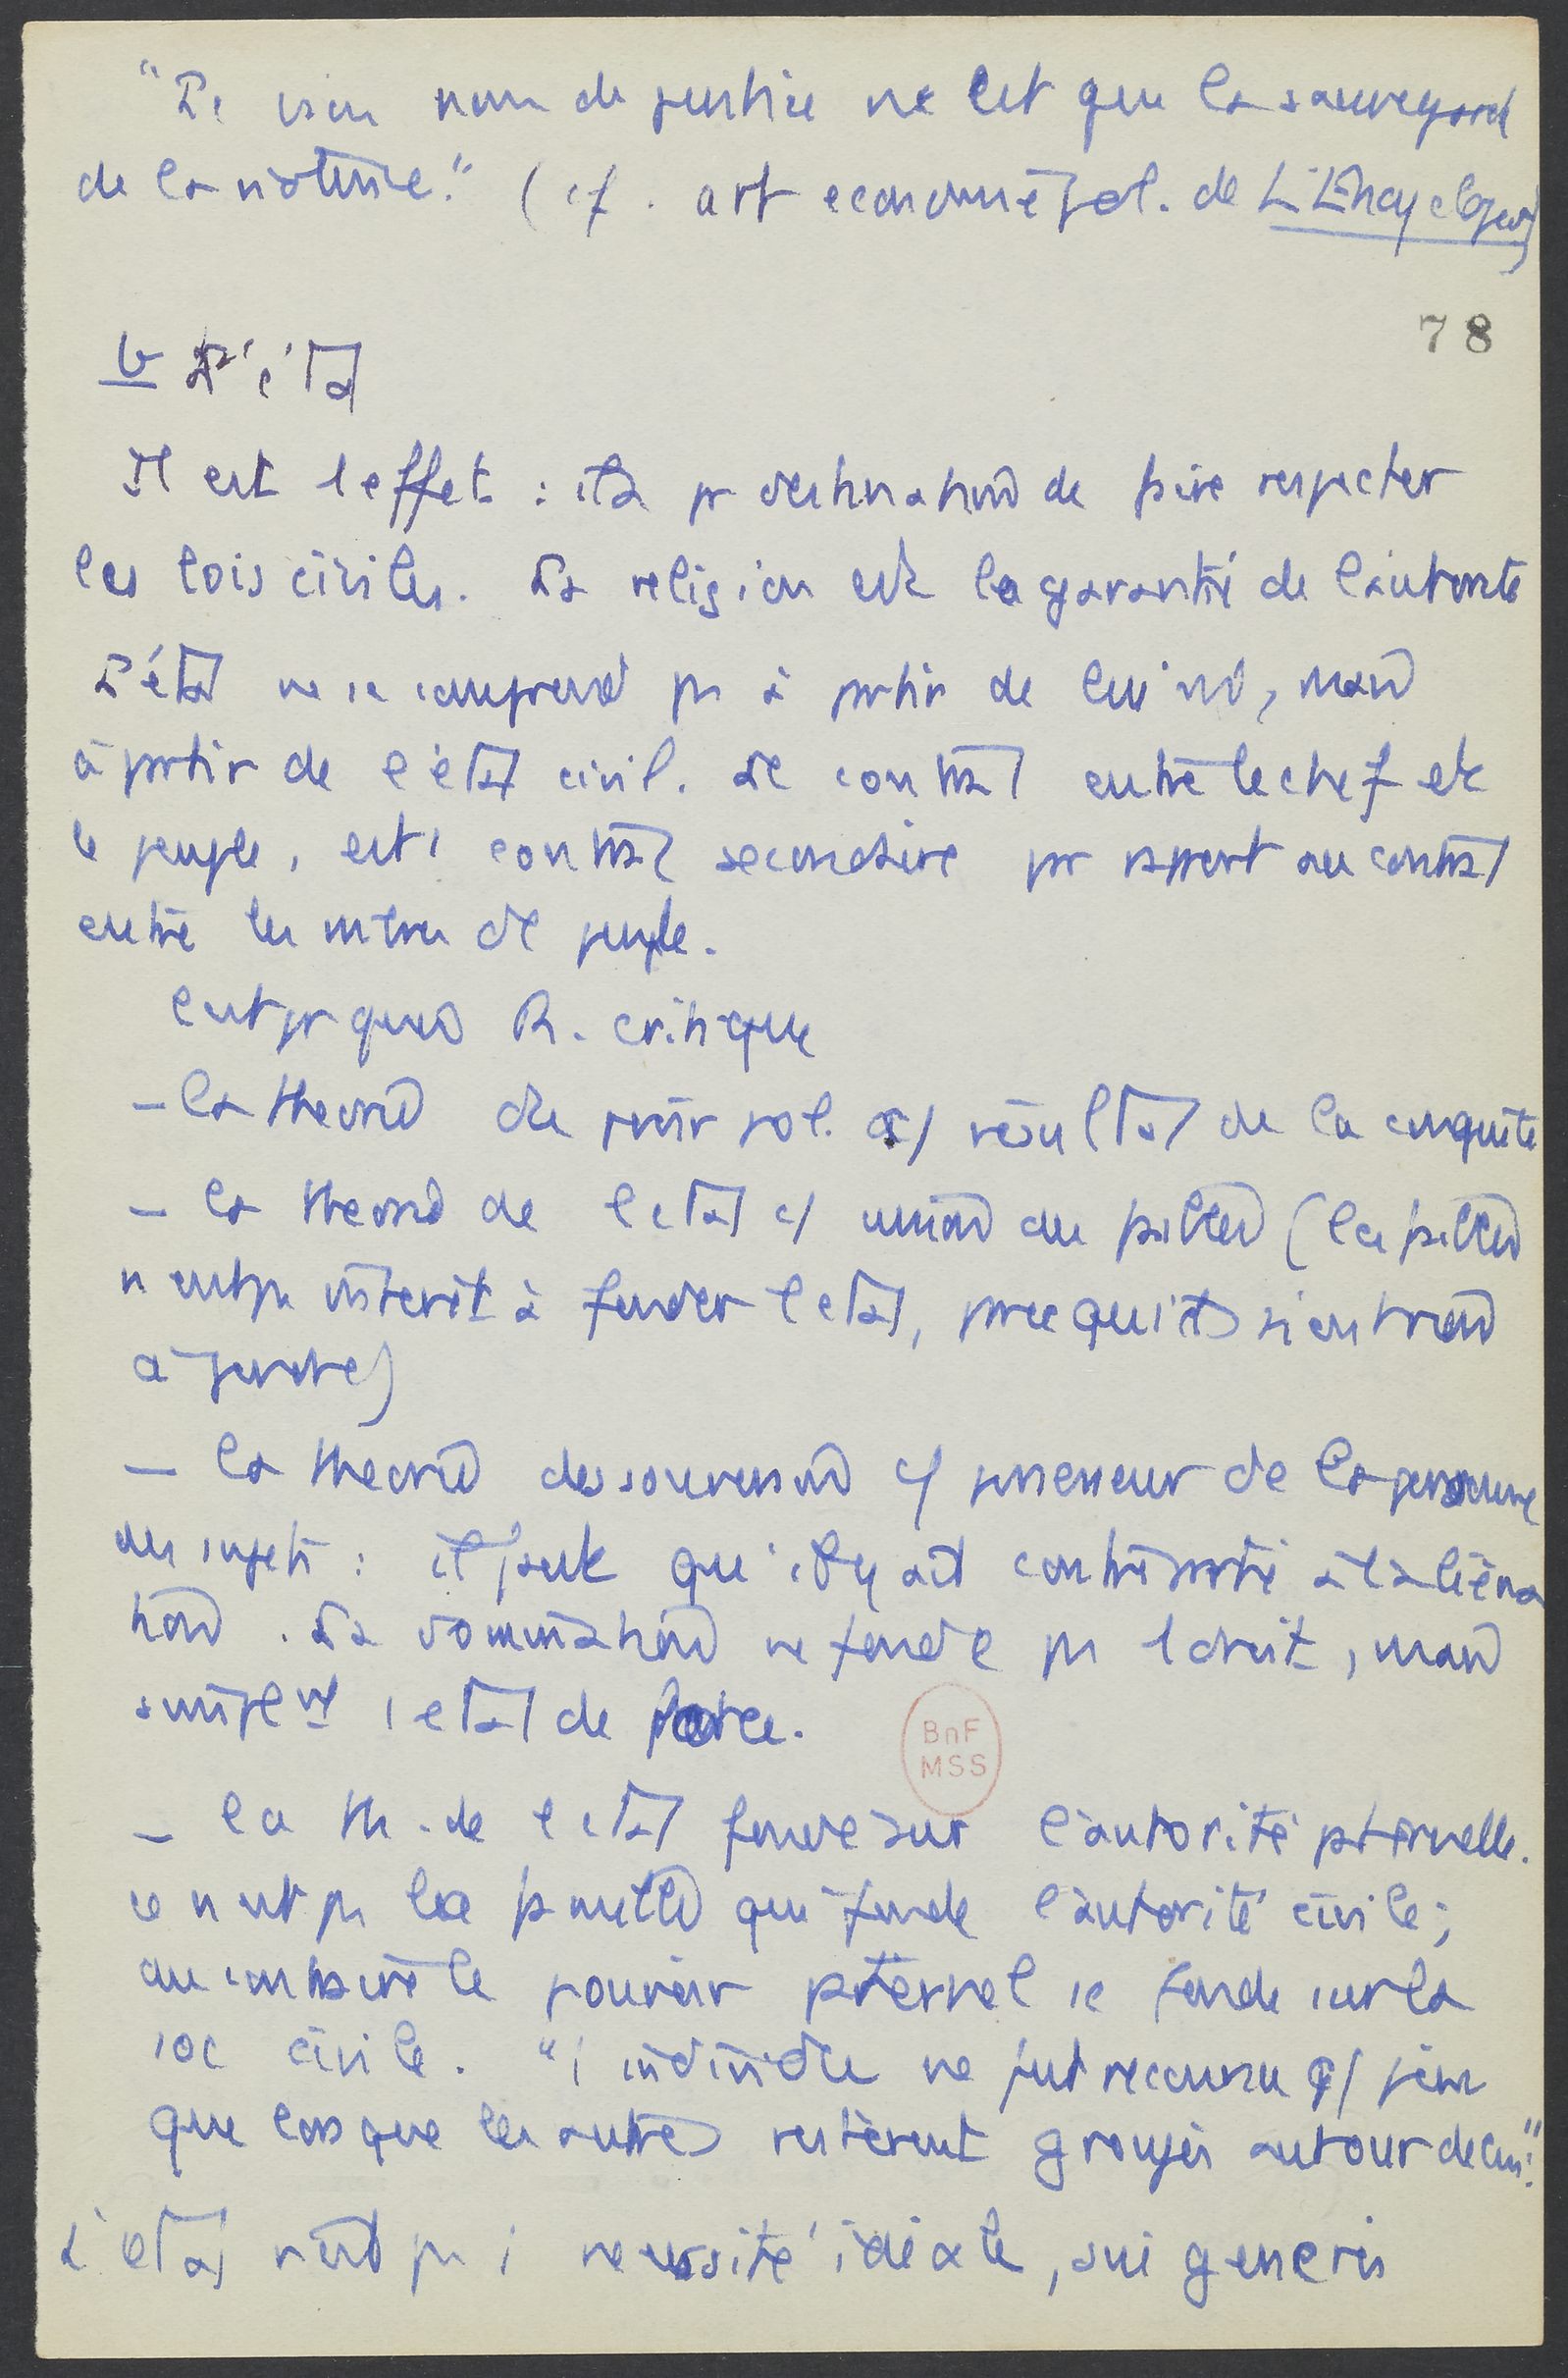 "Le vain nom de justice ne sert que la sauvegard
de la violence." (cf. art economie pol. de L'Encyclopédie)
78
b L'état
Il est l'effet : il a pr destination de faire respecter
les lois civiles. La religion est la garantie de l'autorité
L'état ne se comprend pas à partir de lui m̂, mais
à partir de l'état civil. Le contrat entre le chef et
le peuple, est 1 contrat secondaire par rapport au contrat
entre les mbres du peuple.
C'est pr quoi R. critique
– la théorie du pvoir pol. c/ résultat de la conquête
– la théorie de l'état c/ union des faibles (les faibles
n'ont pas intérêt à fonder l'état, parce qu'ils n'ont rien
à perdre)
– la théorie des souverains c/ possesseur de la personne
des sujets : il faut qu'il y ait contrepartie à l'aliéna
tion. La domination ne fonde pas 1 droit, mais
simplemt 1 état de force.
– la th. de l'état fondé sur l'autorité paternelle.
ce n'est pas la famille qui fonde l'autorité civile ;
au contraire le pouvoir paternel se fonde sur la
soc civile. "1 individu ne fut reconnu c/ père
que lorsque les autres restèrent groupés autour de lui".
L'état n'est pas 1 nécessité idéale, sui generis
BnF
MSS